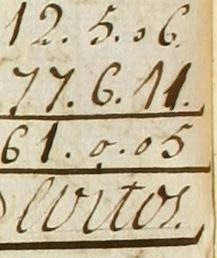 12.5.06
77.6.11.
61.0.05